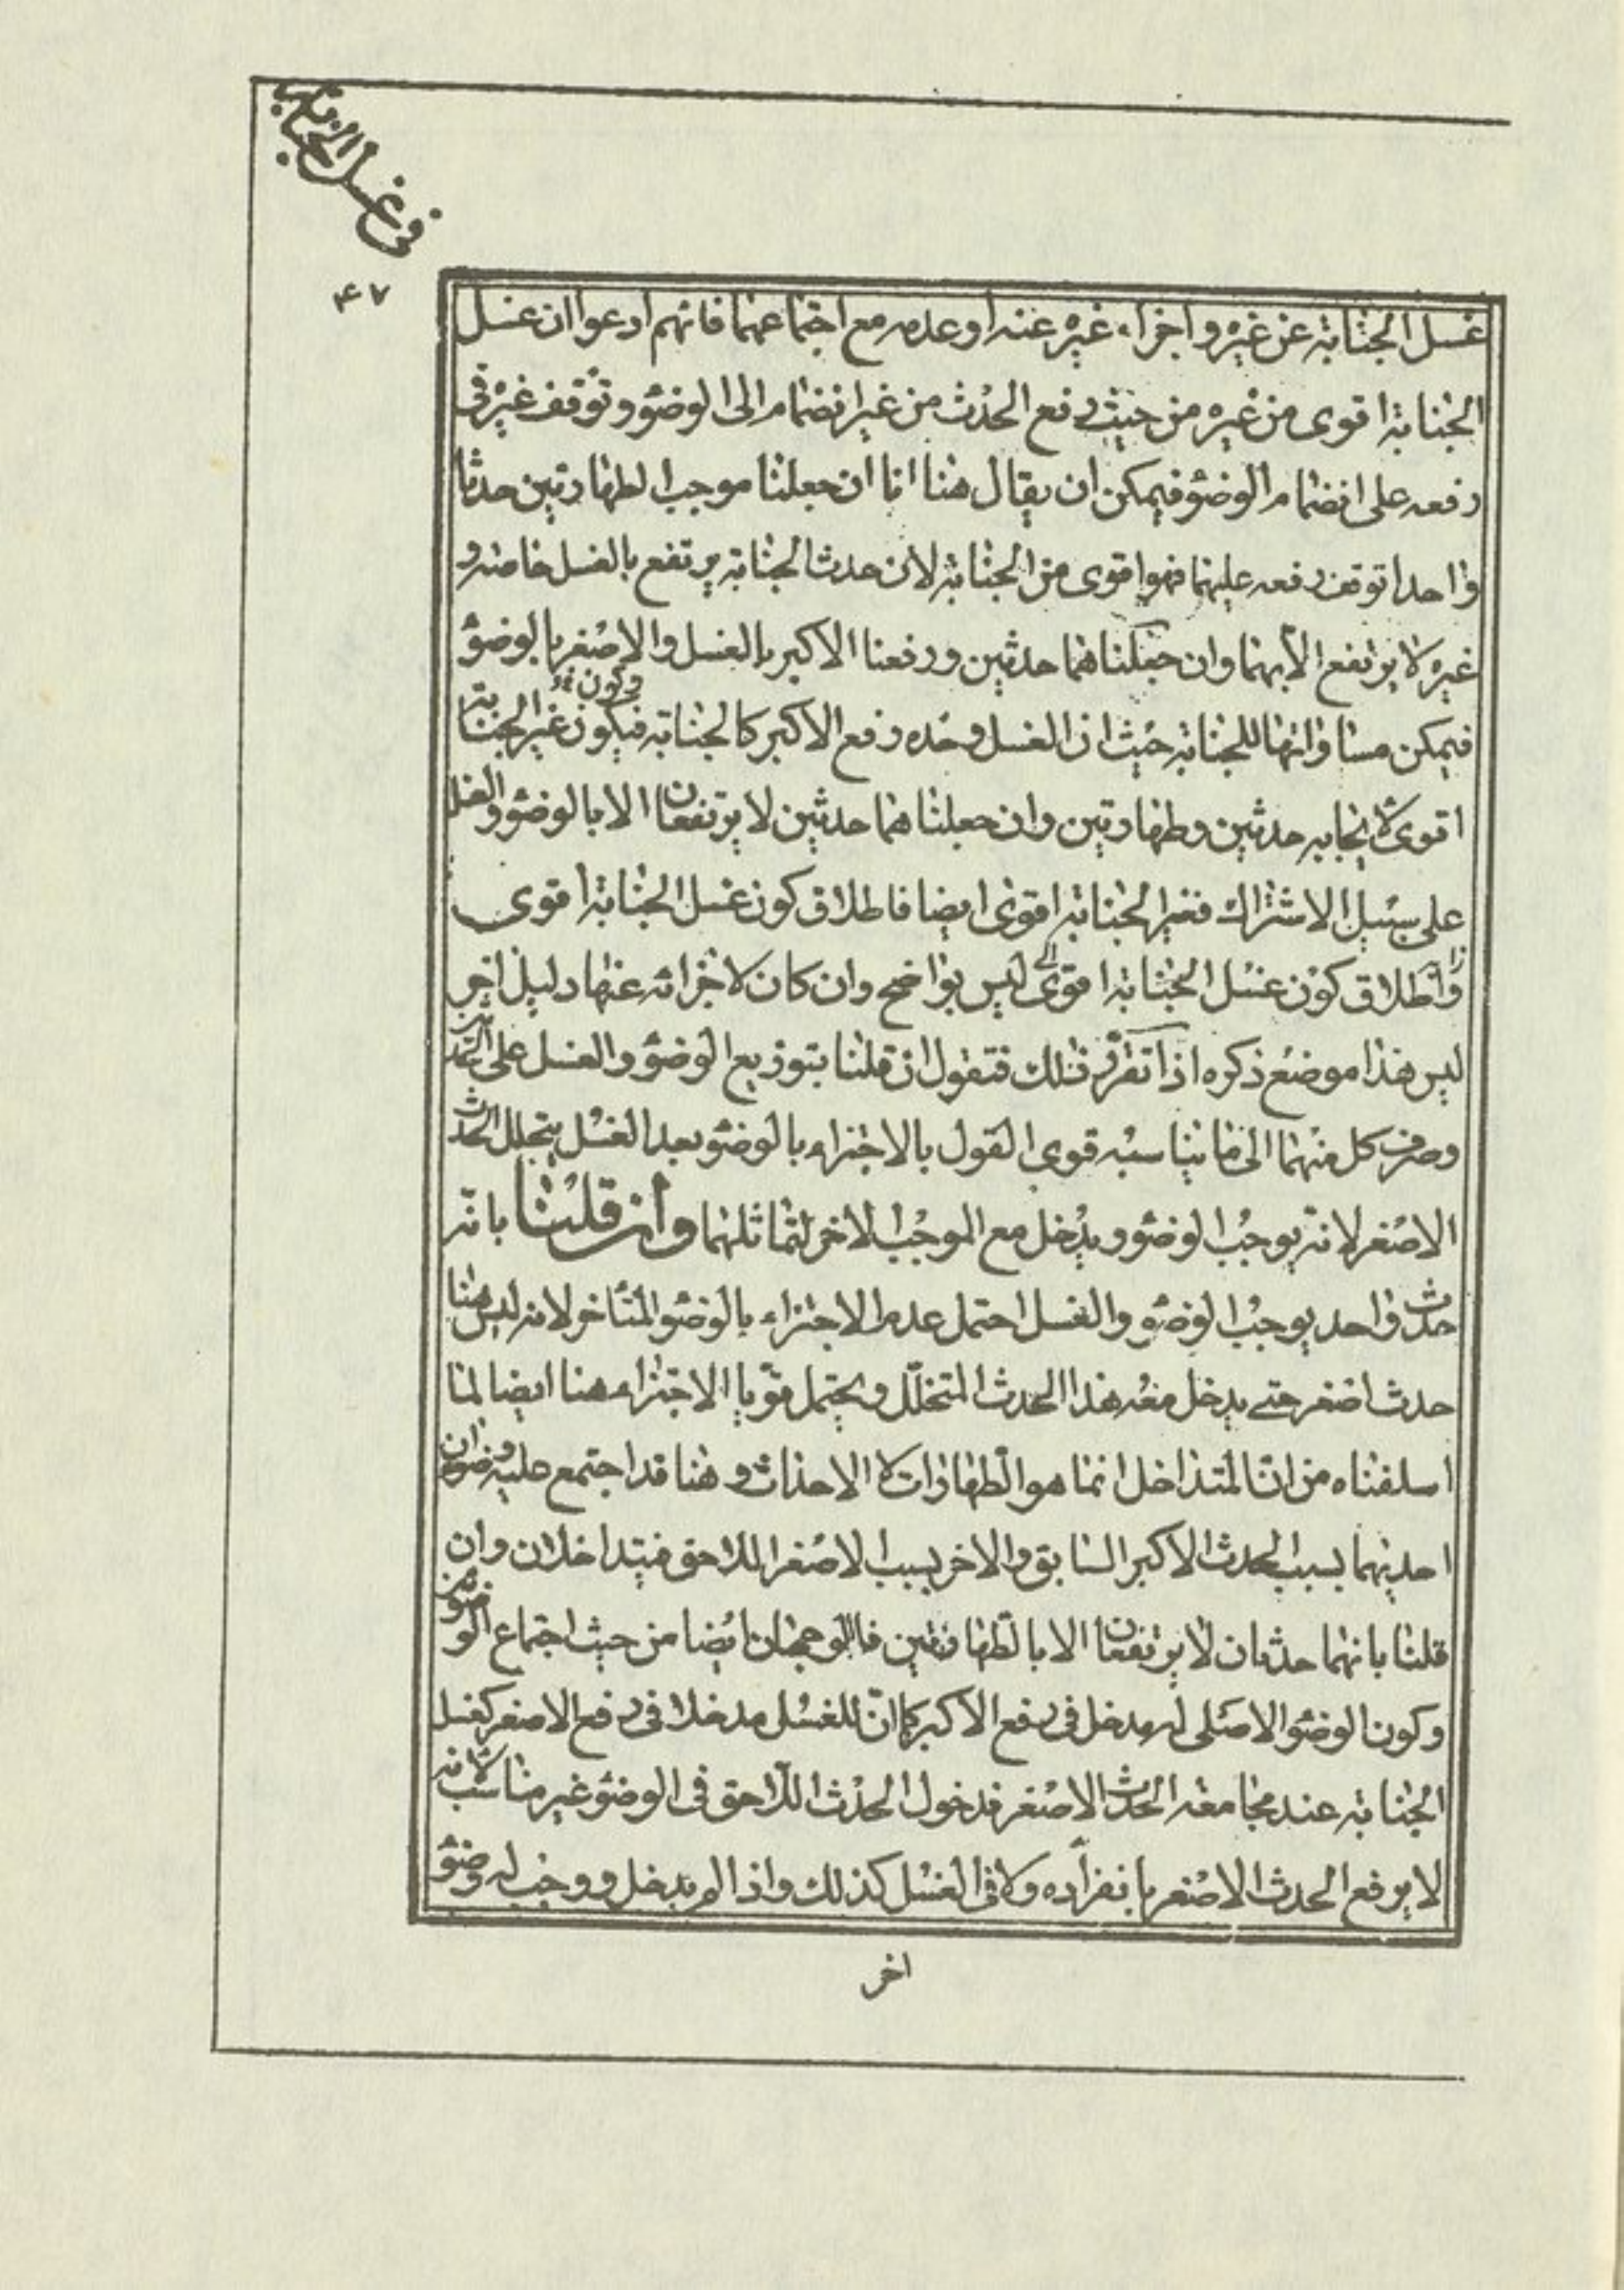 في غسل الجنابة
۴۷
غسل الجنابة عن غيره واجزاء غيره عنه او عدمه مع اجتماعهما فانهم ادعوا ان غسل
الجنابة اقوى من غيره من حيث رفع الحدث من غير انضمام الى الوضوء وتوقف غيره في
رفعه على انضمام الوضوء فيمكن ان يقال هنا انا ان جعلنا موجب الطهارتين حدثا
واحدا توقف رفعه عليهما فهو اقوى من الجنابة لان حدث الجنابة يرتفع بالغسل خاصة و
غيره لا يرتفع الا بهما وان جعلناهما حدثين ورفعنا الاكبر بالغسل والاصغر بالوضوء
فيمكن مساواتها للجنابة حيث ان الغسل وحده رفع الاكبر كالجنابة فيكون غير الجنابة
وكون
اقوى لايجابه حدثين وطهارتين وان جعلناهما حدثين لا يرتفعان الا بالوضوء والغسل
على سبيل الاشتراك فغير الجنابة اقوى ايضا فاطلاق كون غسل الجنابة اقوى
واطلاق كون غسل الجنابة اقوى ليس بواضح وان كان لاجزائه عنها دليل اخر
ليس هذا موضع ذكره اذا تقرر ذلك فنقول ان قلنا بتوزيع الوضوء والغسل على الحدثين
وصرف كل منهما الى ما يناسبه قوى القول بالاجتزاء بالوضوء بعد الغسل بتخلل الحدث
الاصغر لانه يوجب الوضوء ويدخل مع الموجب الاخر لتماثلهما وان قلنا بانه
حدث واحد يوجب الوضوء والغسل احتمل عدم الاجتزاء بالوضوء المتأخر لانه ليس هنا
حدث اصغر حتى يدخل معه هذا الحدث المتخلل ويحتمل قويا الاجتزاء هنا ايضا لما
اسلفناه من ان المتداخل انما هو الطهارات لا الاحداث وهنا قد اجتمع عليه وضوان
احديهما بسبب الحدث الاكبر السابق والاخر بسبب الاصغر اللاحق فيتداخلان وان
قلنا بانهما حدثان لا يرتفعان الا بالطهارتين فالوجهان ايضا من حيث اجتماع الوضوئين
وكون الوضوء الاصلى له مدخل في رفع الاكبر كما ان للغسل مدخلا في رفع الاصغر كغسل
الجنابة عند مجامعة الحدث الاصغر فدخول الحدث اللاحق في الوضوء غير مناسب لانه
لا يرفع الحدث الاصغر بانفراده ولا في الغسل كذلك واذا لم يدخل ووجب له وضوء
اخر